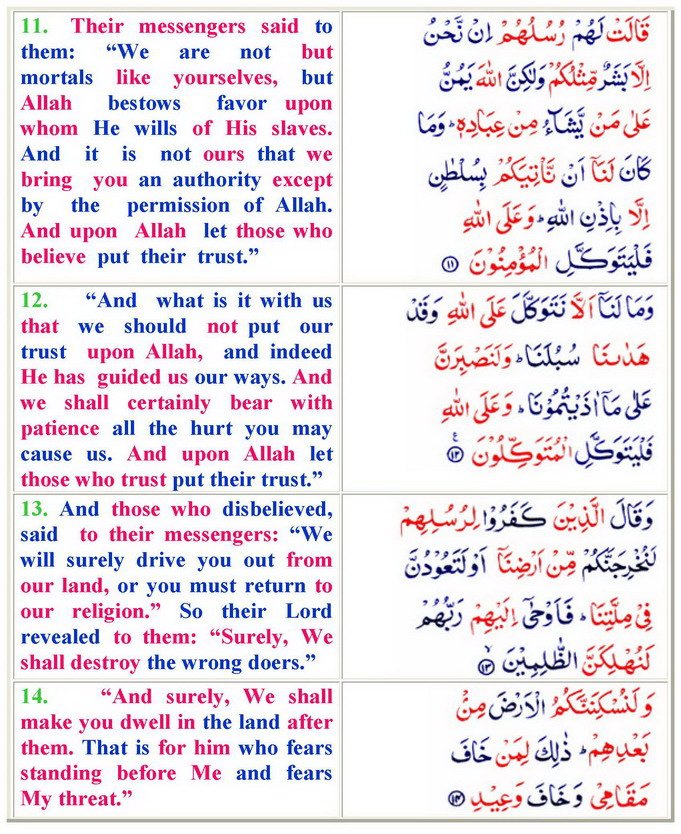 11. Their messengers said to
them: “We are not but
mortals like yourselves, but
Allah bestows favor upon
whom He wills of His slaves.
And it is not ours that we
bring you an authority except
by the permission of Allah.
And upon Allah let those who
believe put their trust.”
قَالَتْ لَهُمْ رُسُلُهُمْ اِنْ نَّحْنُ
اِلَّا بَشَرٌ مِّثْلُكُمْ وَلٰكِنَّ اللّٰهَ يَمُنُّ
عَلٰى مَنْ يَّشَآءُ مِنْ عِبَادِهٖؕ وَمَا
كَانَ لَنَاۤ اَنْ نَّاْتِيَكُمْ بِسُلْطٰنٍ
اِلَّا بِاِذْنِ اللّٰهِؕ وَعَلَى اللّٰهِ
فَلْيَتَوَكَّلِ الْمُؤْمِنُوْنَ ۝۱۱
12. “And what is it with us
that we should not put our
trust upon Allah, and indeed
He has guided us our ways. And
we shall certainly bear with
patience all the hurt you may
cause us. And upon Allah let
those who trust put their trust.”
وَمَا لَنَاۤ اَلَّا نَتَوَكَّلَ عَلَى اللّٰهِ وَقَدْ
هَدٰىنَا سُبُلَنَاؕ وَلَنَصْبِرَنَّ
عَلٰى مَاۤ اٰذَيْتُمُوْنَاؕ وَعَلَى اللّٰهِ
فَلْيَتَوَكَّلِ الْمُتَوَكِّلُوْنَ ۝۱۲
13. And those who disbelieved,
said to their messengers: “We
will surely drive you out from
our land, or you must return to
our religion.” So their Lord
revealed to them: “Surely, We
shall destroy the wrong doers.”
وَقَالَ الَّذِيْنَ كَفَرُوْا لِرُسُلِهِمْ
لَنُخْرِجَنَّكُمْ مِّنْ اَرْضِنَاۤ اَوْ لَتَعُوْدُنَّ
فِيْ مِلَّتِنَاؕ فَاَوْحٰۤى اِلَيْهِمْ رَبُّهُمْ
لَنُهْلِكَنَّ الظّٰلِمِيْنَ ۝۱۳
14. “And surely, We shall
make you dwell in the land after
them. That is for him who fears
standing before Me and fears
My threat.”
وَلَنُسْكِنَنَّكُمُ الْاَرْضَ مِنْۢ
بَعْدِهِمْؕ ذٰلِكَ لِمَنْ خَافَ
مَقَامِيْ وَخَافَ وَعِيْدِ ۝۱۴